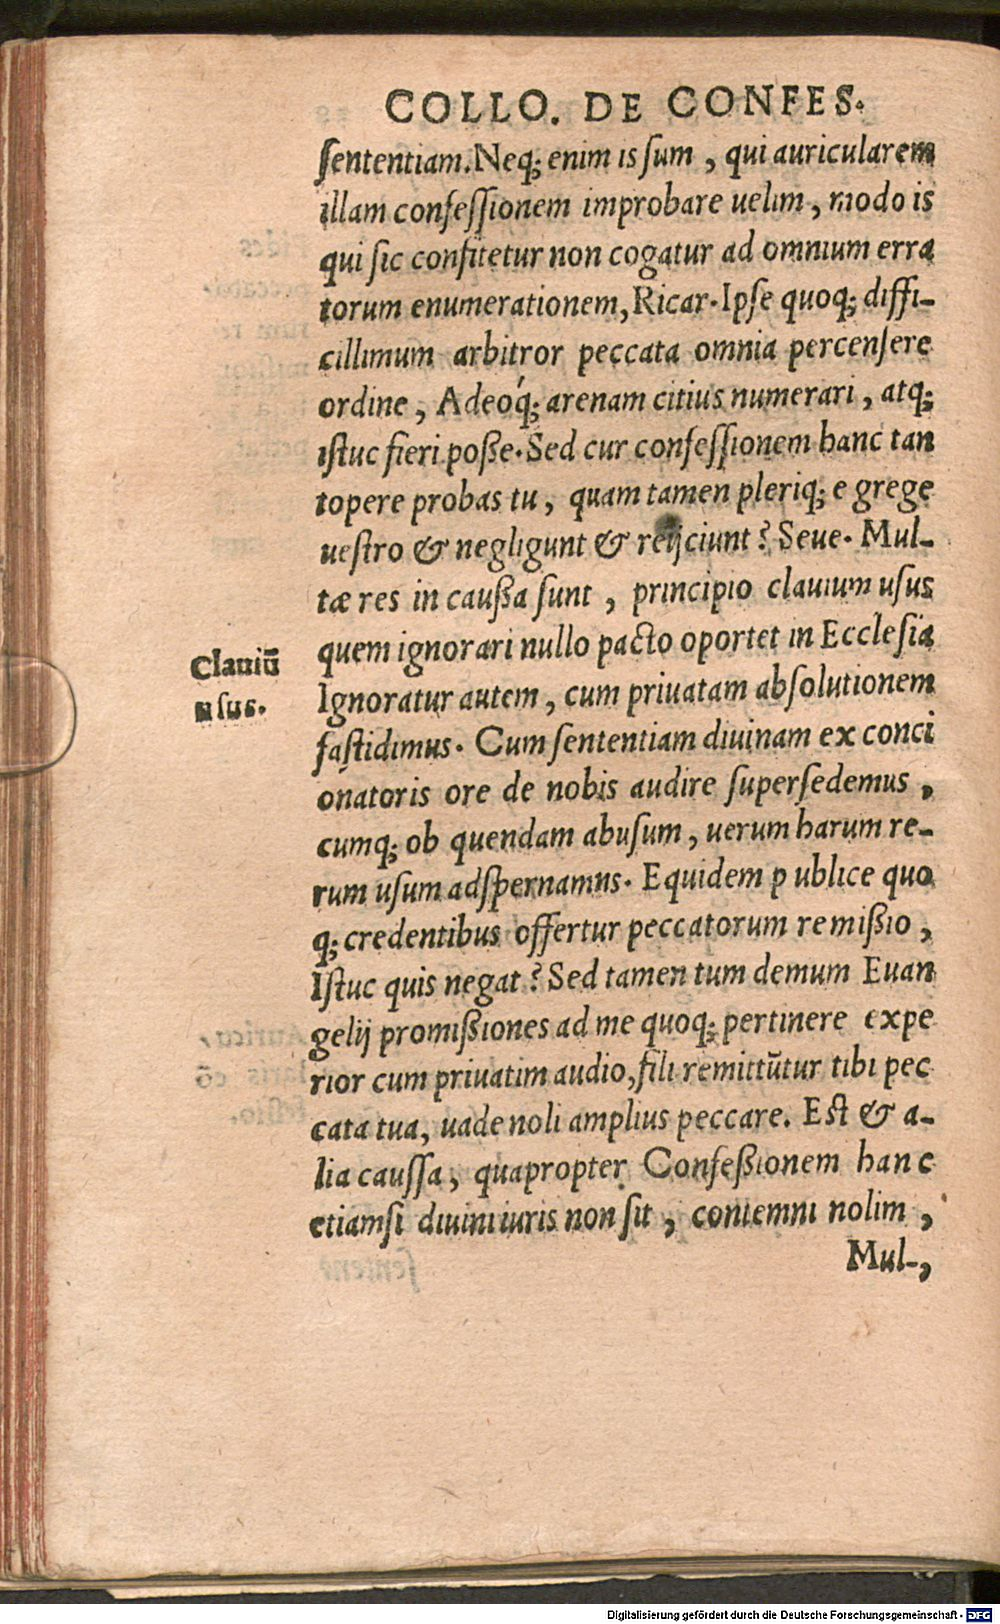 COLLO. DE CONFES.
sententiam. Neq; enim is sum, qui auricularem
illam confessionem improbare uelim, modo is
qui sic confitetur non cogatur ad omnium erra
torum enumerationem, Ricar. Ipse quoq; diffi-
cillimum arbitror peccata omnia percensere
ordine, Adeoq́; arenam citius numerari, atq;
istuc fieri poße. Sed cur confessionem hanc tan
topere probas tu, quam tamen pleriq; e grege
uestro & negligunt & reijciunt? Seue. Mul-
tæ res in caußa sunt, principio clauium usus
quem ignorari nullo pacto oportet in Ecclesia
Clauiū
usus.
Ignoratur autem, cum priuatam absolutionem
fastidimus. Cum sententiam diuinam ex conci
onatoris ore de nobis audire supersedemus,
cumq; ob quendam abusum, uerum harum re-
rum usum adspernamus. Equidem p ublice quo
q; credentibus offertur peccatorum remißio,
Istuc quis negat? Sed tamen tum demum Euan
gelij promißiones ad me quoq; pertinere expe
rior cum priuatim audio, fili remittūtur tibi pec
cata tua, uade noli amplius peccare. Est & a-
lia caussa, quapropter Confeßionem hanc
etiamsi diuini iuris non sit, contemni nolim,
Mul-,
Digitalisierung gefördert durch die Deutsche Forschungsgemeinschaft - DFG